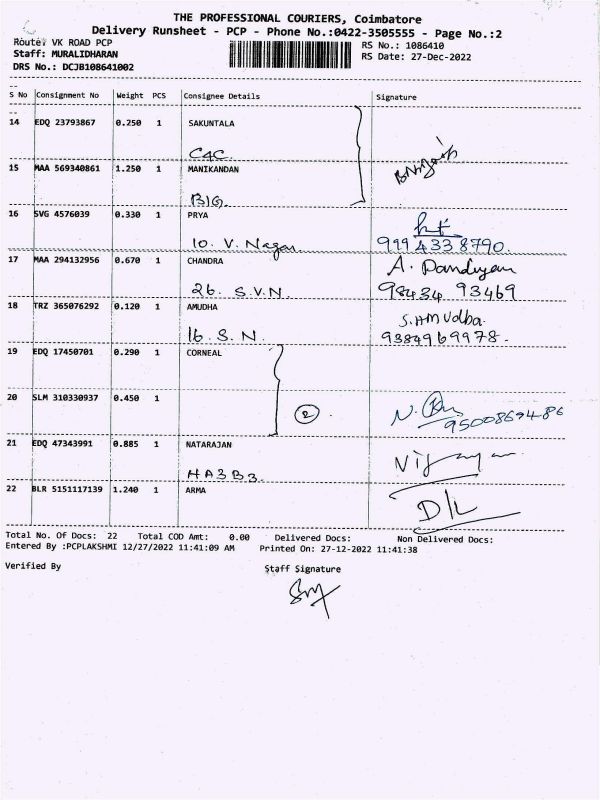 THE PROFESSIONAL COURIERS, Coimbatore
Delivery Runsheet - PCP - Phone No.:0422-3505555 - Page No.:2
Route: VK ROAD PCP
Staff: MURALIDHARAN
DRS No.: DCJB108641002
RS No.: 1086410
RS Date: 27-Dec-2022
S No Consignment No Weight PCS Consignee Details Signature
14 EDQ 23793867 0.250 1 SAKUNTALA
C4C.
15 MAA 569340861 1.250 1 MANIKANDAN
B1G.
16 SVG 4576039 0.330 1 PRYA
10. V. Nagar 9994338790.
17 MAA 294132956 0.670 1 CHANDRA A. Pandiyan
26. S.V.N. 98434 93469
18 TRZ 365076292 0.120 1 AMUDHA
16. S. N. 9384969978.
19 EDQ 17450701 0.290 1 CORNEAL
20 SLM 310330937 0.450 1
2 9500869486
21 EDQ 47343991 0.885 1 NATARAJAN
HA3B3. Vijayan
22 BLR 5151117139 1.240 1 ARMA
D/L
Total No. Of Docs: 22 Total COD Amt: 0.00 Delivered Docs: Non Delivered Docs:
Entered By :PCPLAKSHMI 12/27/2022 11:41:09 AM Printed On: 27-12-2022 11:41:38
Verified By Staff Signature